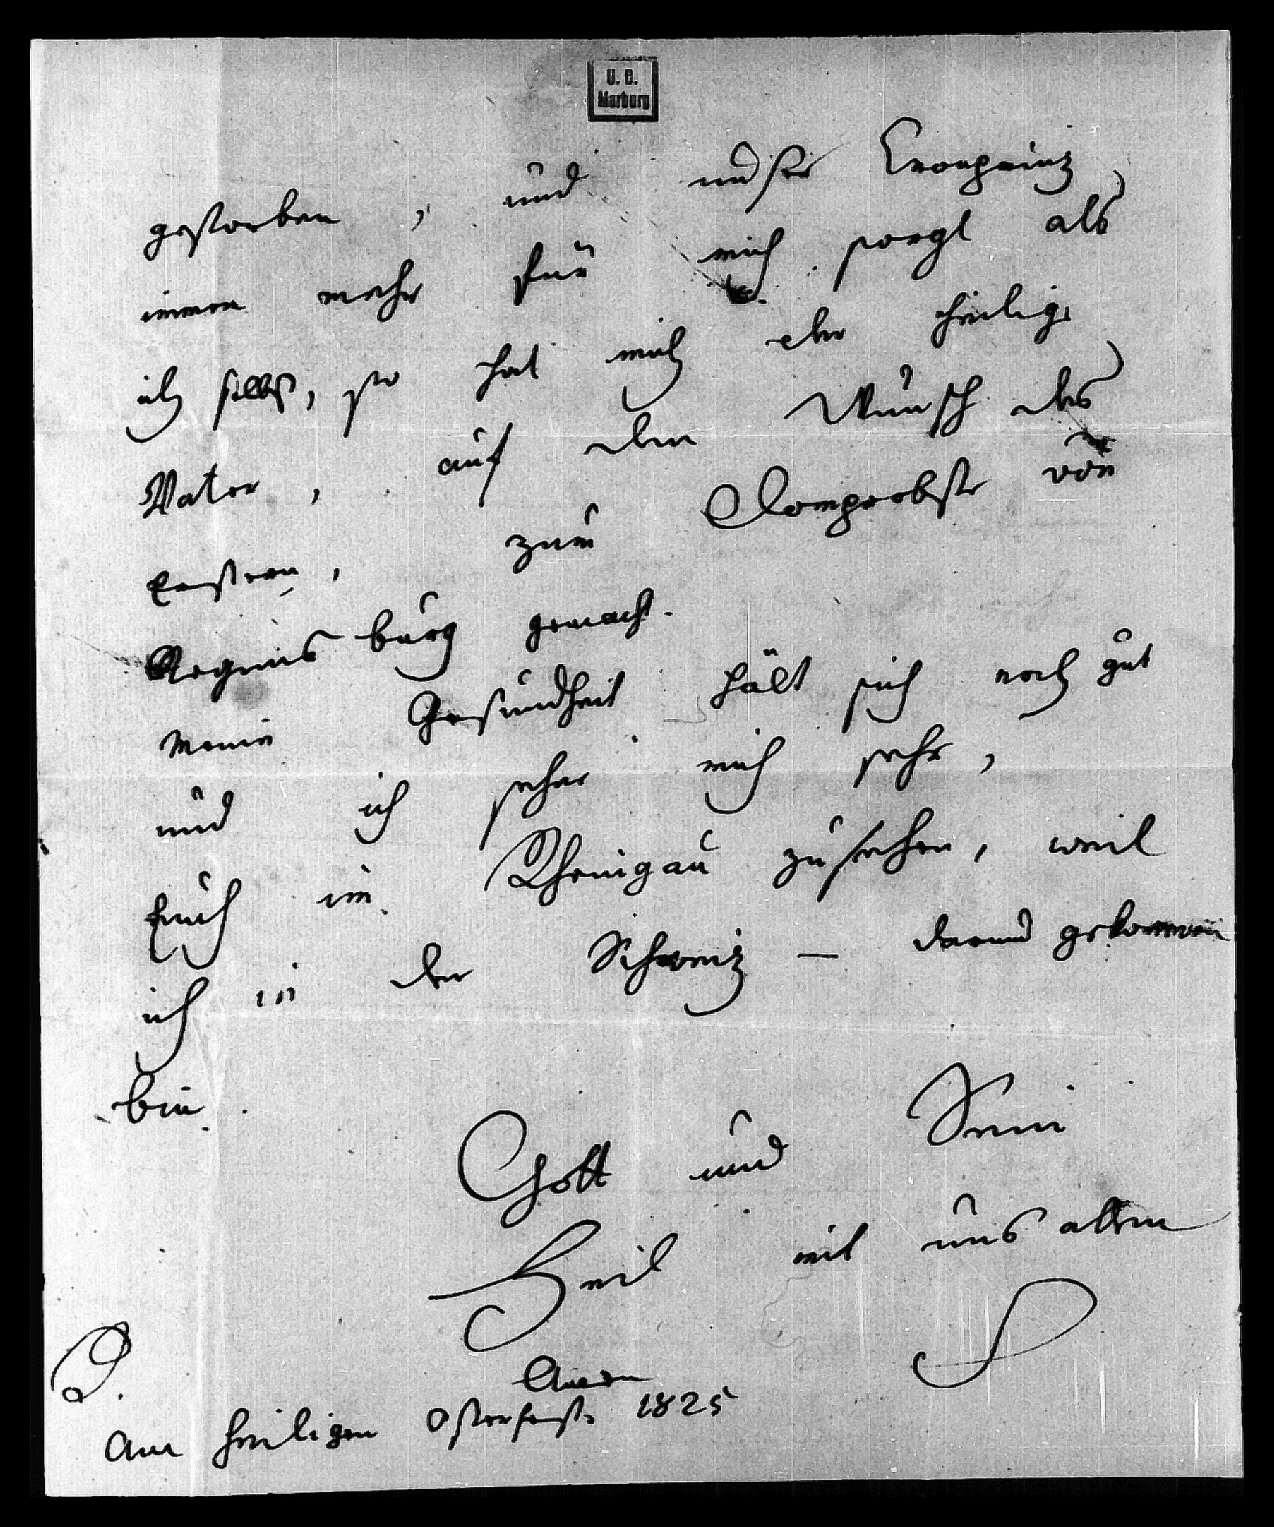 U. B.
Marburg
gestorben, und unser Cronprinz
immer mehr für mich sorgt als
ich selbst, so hat mich der heilige
Vater, auf den Wunsch des
Erstern, zum Domprobste von
Regensburg gemacht.
Meine Gesundheit hält sich noch gut
und ich sehne mich sehr,
Euch im Rheingau zusehen, weil
ich in der Schweiz — darum gekommen
bin.
Gott und Sein
Heil mit uns allen
Amen
S
D.
am heiligen Osterfeste 1825